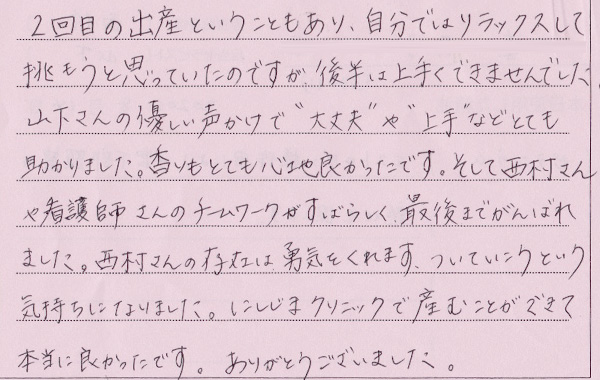 2回目の出産ということもあり、自分ではリラックスして
挑もうと思っていたのですが、後半は上手くできませんでした。
山下さんの優しい声かけで"大丈夫"や"上手"などとても
助かりました。香りもとても心地良かったです。そして西村さん
や看護師さんのチームワークがすばらしく、最後までがんばれ
ました。西村さんの存在は勇気をくれます、ついていこうという
気持ちになりました。にしじまクリニックで産むことができて
本当に良かったです。ありがとうございました。